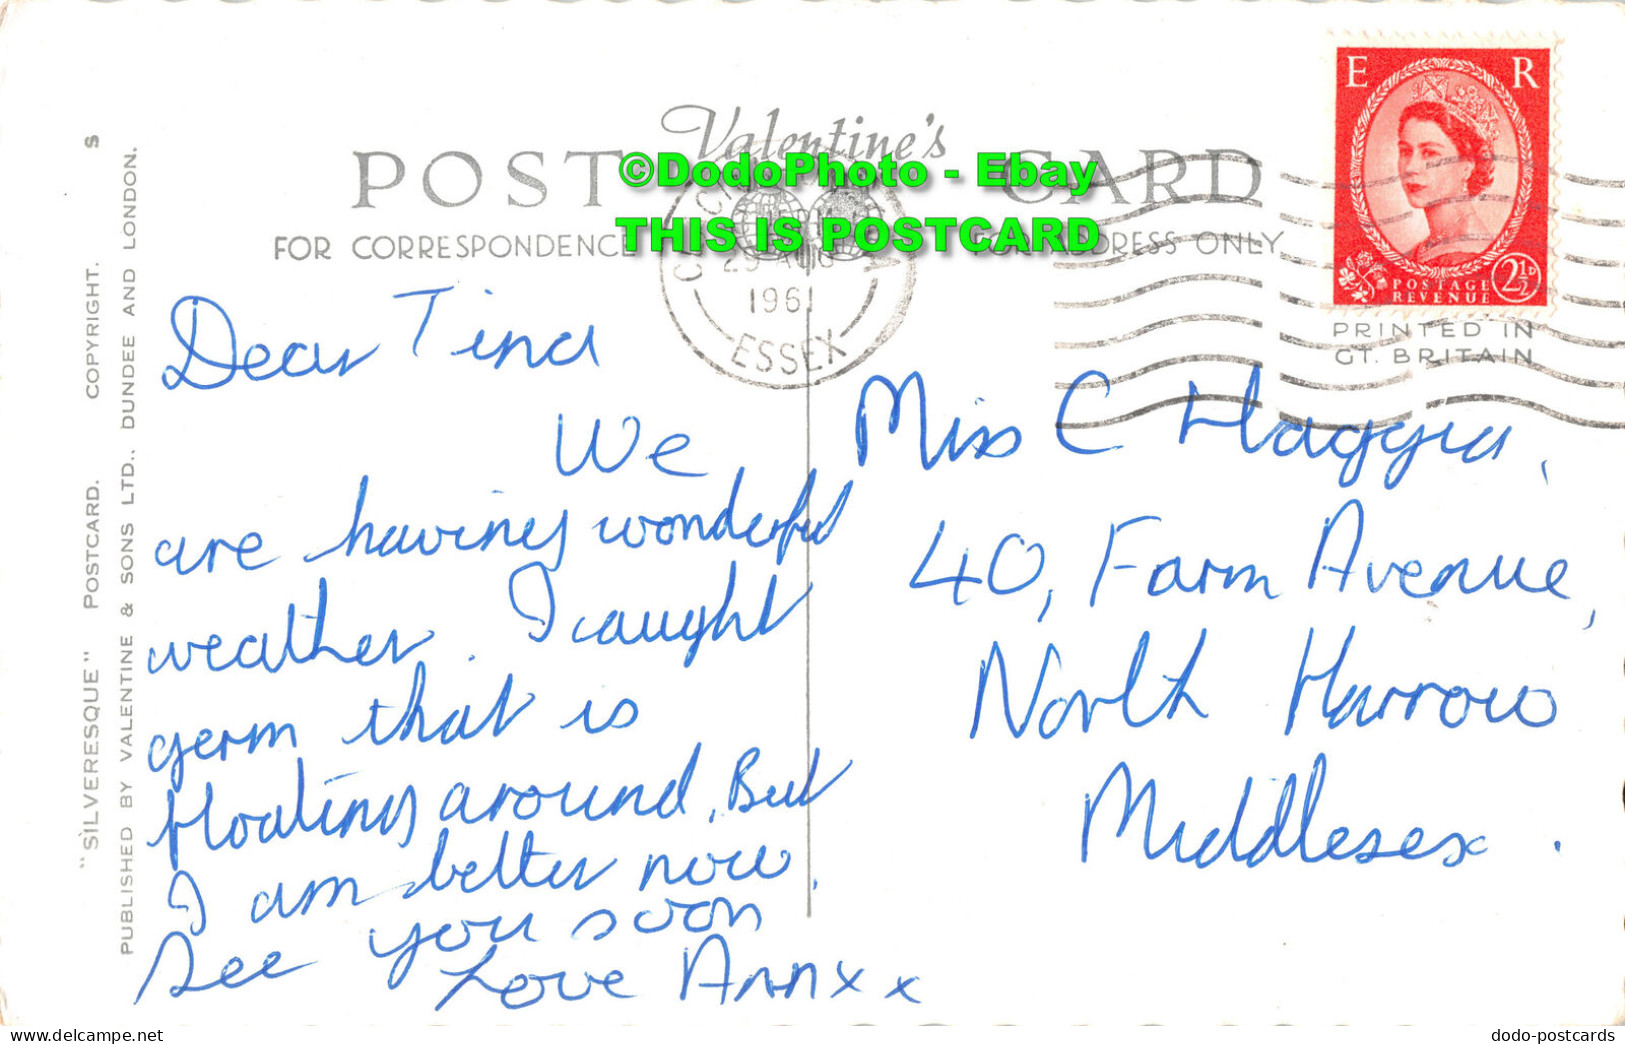 Valentine's
POST CARD
FOR CORRESPONDENCE
FOR ADDRESS ONLY
©DodoPhoto - Ebay
THIS IS POSTCARD
29 AUG
1961
ESSEX
E R
POSTAGE
REVENUE
2½D
PRINTED IN
GT. BRITAIN
"SILVERESQUE" POSTCARD. COPYRIGHT. S
PUBLISHED BY VALENTINE & SONS LTD., DUNDEE AND LONDON.
Dear Tina
We
are having wonderful
weather. I caught
germ that is
floating around. But
I am better now.
See you soon
Love Ann x x
Miss C
40, Farm Avenue,
North Harrow
Middlesex.
dodo-postcards